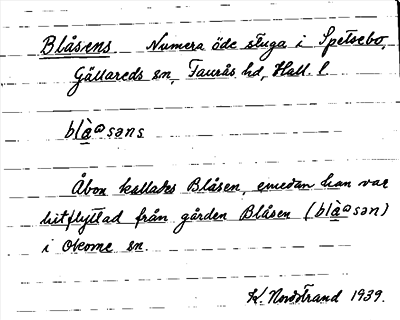 Blåsens. Numera öde stuga i Spetsebo,
Gällareds sn, Faurås hd, Hall. l.
blàᵃsəns
Åbon kallades Blåsen, emedan han var
hitflyttad från gården Blåsen (blàᵃsən)
i Okome sn.
K. Nordstrand 1939.